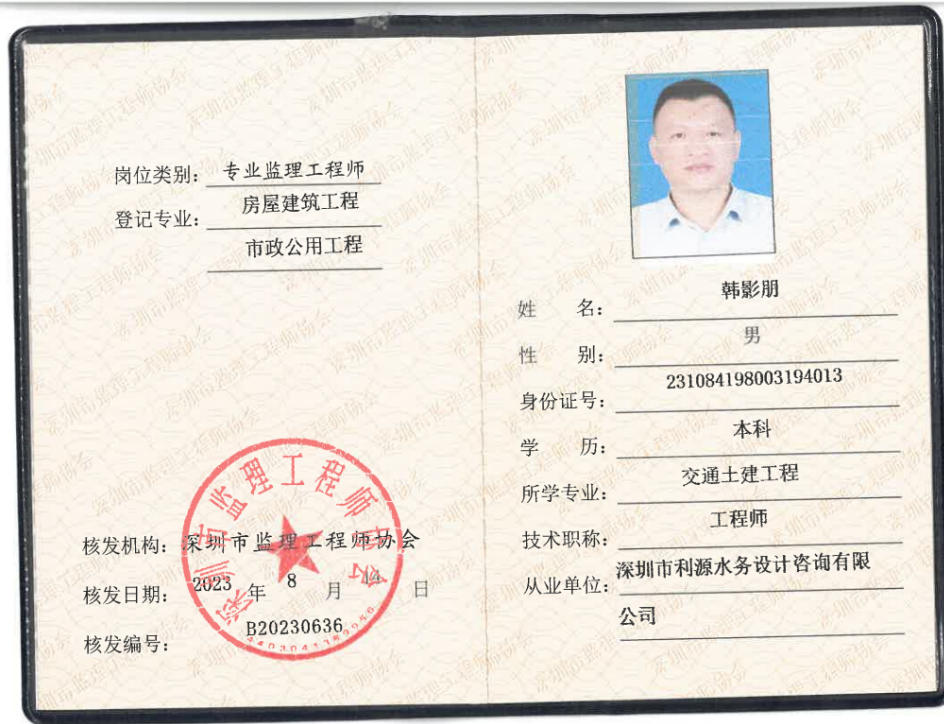 岗位类别: 专业监理工程师
登记专业: 房屋建筑工程
市政公用工程
深圳市监理工程师协会
核发机构: 深圳市监理工程师协会
核发日期: 2023 年 8 月 日
核发编号: B20230636
姓 名: 韩影朋
性 别: 男
身份证号: 231084198003194013
学 历: 本科
所学专业: 交通土建工程
技术职称: 工程师
从业单位: 深圳市利源水务设计咨询有限
公司